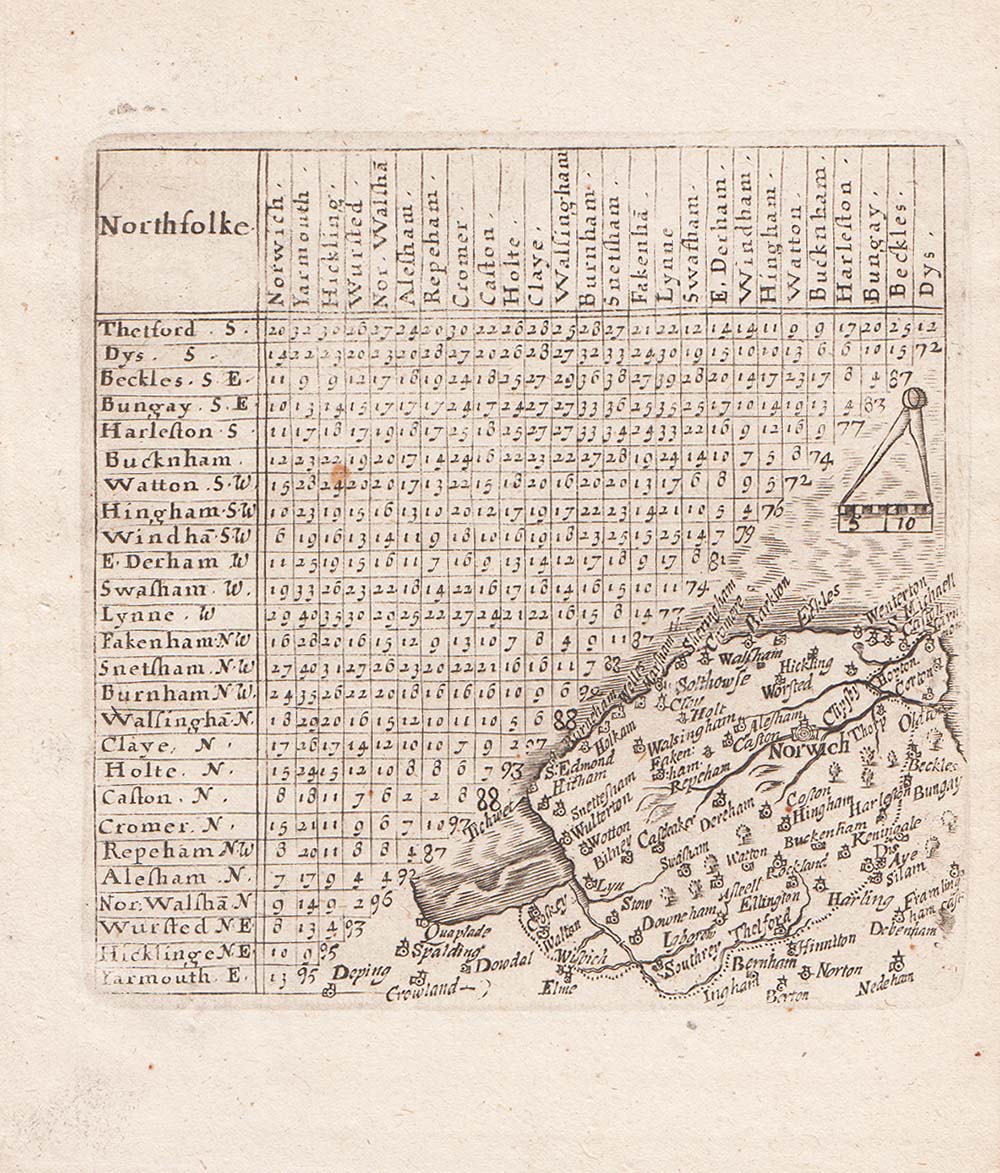 Northfolke
Norwich. Yarmouth. Hickling. Wursted Nor. Walshā Alesham. Repeham. Cromer. Caston. Holte. Claye. Walsingham Burnham. Snetsham. Fakenhā Lynne Swafham. E. Derham Windham. Hingham. Watton. Bucknham. Harleston Bungay. Beckles. Dys.
Thetford. S. 20 32 30 26 27 24 20 30 22 26 28 25 28 27 21 22 12 14 14 11 9 9 17 20 25 12
Dys. S. 14 22 23 20 23 20 28 27 20 26 28 27 32 33 24 30 19 15 10 10 13 6 6 10 15 72
Beckles. S. E. 11 9 9 12 17 18 19 24 18 25 27 29 36 38 27 39 28 20 14 17 23 17 8 4 87
Bungay. S. E 10 13 14 15 17 17 17 24 17 24 27 27 33 36 25 35 25 17 10 14 19 13 4 83
Harleston. S 11 17 18 17 19 18 17 25 18 25 27 27 33 34 24 33 22 16 9 12 16 9 77
Bucknham. 12 23 22 19 20 17 14 24 16 22 23 22 27 28 19 24 14 10 7 5 8 74
Watton. S. W. 15 28 24 20 20 17 13 22 15 18 20 16 20 20 13 17 6 8 9 5 72
Hingham. S. W 10 23 19 15 16 13 10 20 12 17 19 17 22 23 14 21 10 5 4 76
Windhā. S. W 6 19 16 13 14 11 9 18 10 16 19 18 23 25 15 25 14 7 79
E. Derham W 11 25 19 15 16 11 7 16 9 13 14 12 17 18 9 17 8 81
Swafham. W. 19 33 26 23 22 18 14 22 16 17 18 14 16 15 10 11 74
Lynne. W 29 40 35 30 29 25 22 27 24 21 22 16 15 8 14 77
Fakenham N W 16 28 20 16 15 12 9 13 10 7 8 4 9 11 87
Snetsham. N. W 27 40 31 27 26 23 20 22 21 16 16 11 7 88
Burnham N W. 24 35 26 22 20 18 16 16 16 10 9 6
Walsinghā. N. 18 29 20 16 15 12 10 11 10 5 6 88
Claye, N. 17 26 17 14 12 10 10 7 9 2 97
Holte. N. 15 24 15 12 10 8 8 6 7 93
Caston. N. 8 18 11 7 6 2 2 8 88
Cromer. N. 15 21 11 9 6 7 10 97
Repeham N W 8 20 11 8 8 4 87
Alesham. N. 7 17 9 4 4 92
Nor: Walshā N 9 14 9 2 96
Wursted N E 8 13 4 93
Hicklinge N E 10 9 95
Yarmouth. E. 13 95
5 10
Sheringham
Cromere
Barkton
Eckles
Wenterton
S. Michaell
Walsham
Hickling
Worsted
Solthowse
Holt
Burneham
Holkam
Walsingham
Alesham
Caston
Clippsby
Norwich
Thorp
S. Edmond
Hitham
Faken:
ham
Repeham
Beckles
Snettesham
Wulterton
Wotton
Bilney
Castaker
Dereham
Coston
Hingham
Harleston
Bungay
Buckenham
Keningale
Dis
Aye
Silam
Lyn
Swafham
Watton
Rockland
Stow
Downeham
Ellington
Harling
Framling
ham cast
Debenham
Walton
Wisbich
Southrey
Thetford
Hinniton
Quaplade
Spalding
Dowdal
Deping
Crowland
Elme
Bernham
Ingham
Norton
Berton
Nedeham